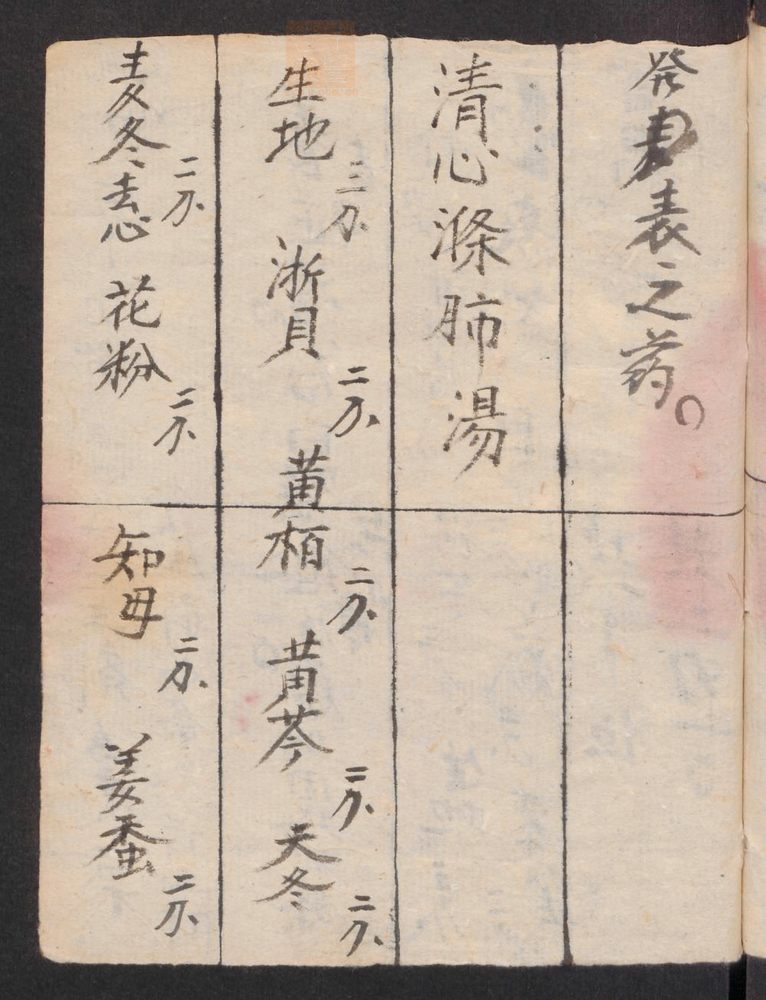 発表之药。
清心滌肺湯
生地三分 淅貝二分 黄栢二分 黄芩二分 天冬二分
麦冬去心二分 花粉二分 知母二分 姜蚕二分